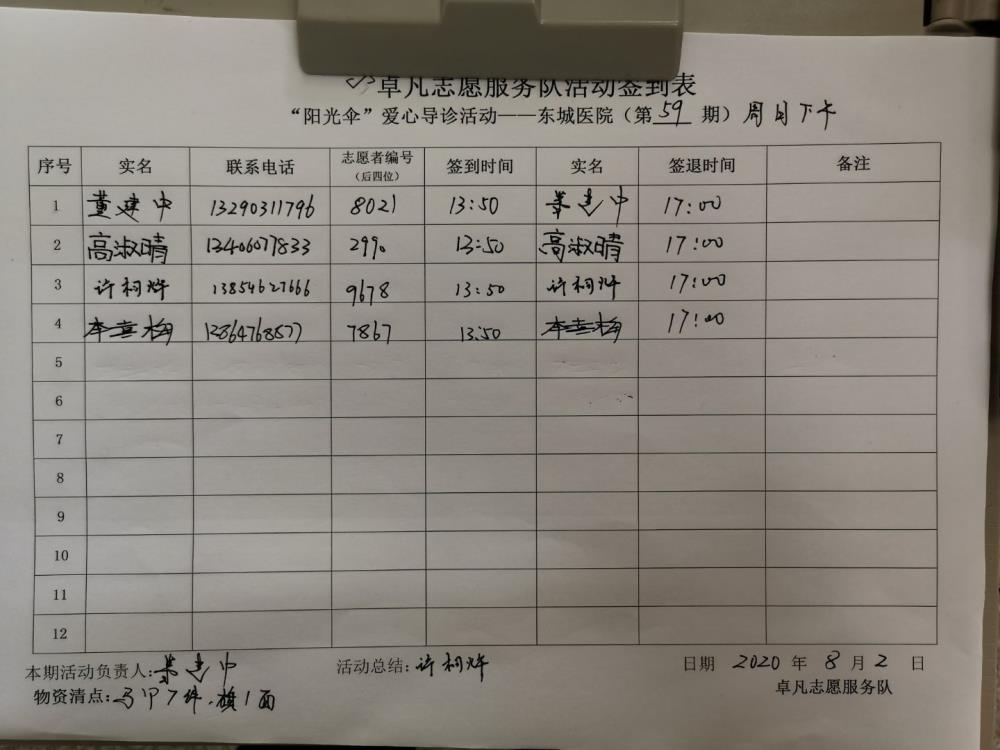 卓凡志愿服务队活动签到表
“阳光伞”爱心导诊活动——东城医院（第 59 期）周日下午
序号 实名 联系电话 志愿者编号（后四位） 签到时间 实名 签退时间 备注
1 董建中 13290311796 8021 13:50 董建中 17:00
2 高淑晴 13406077833 2990 13:50 高淑晴 17:00
3 许柯烨 13854627666 9678 13:50 许柯烨 17:00
4 13864768577 7867 13:50 17:00
5
6
7
8
9
10
11
12
本期活动负责人:董建中 活动总结:许柯烨 日期 2020 年 8 月 2 日
物资清点:马甲7件、旗1面 卓凡志愿服务队